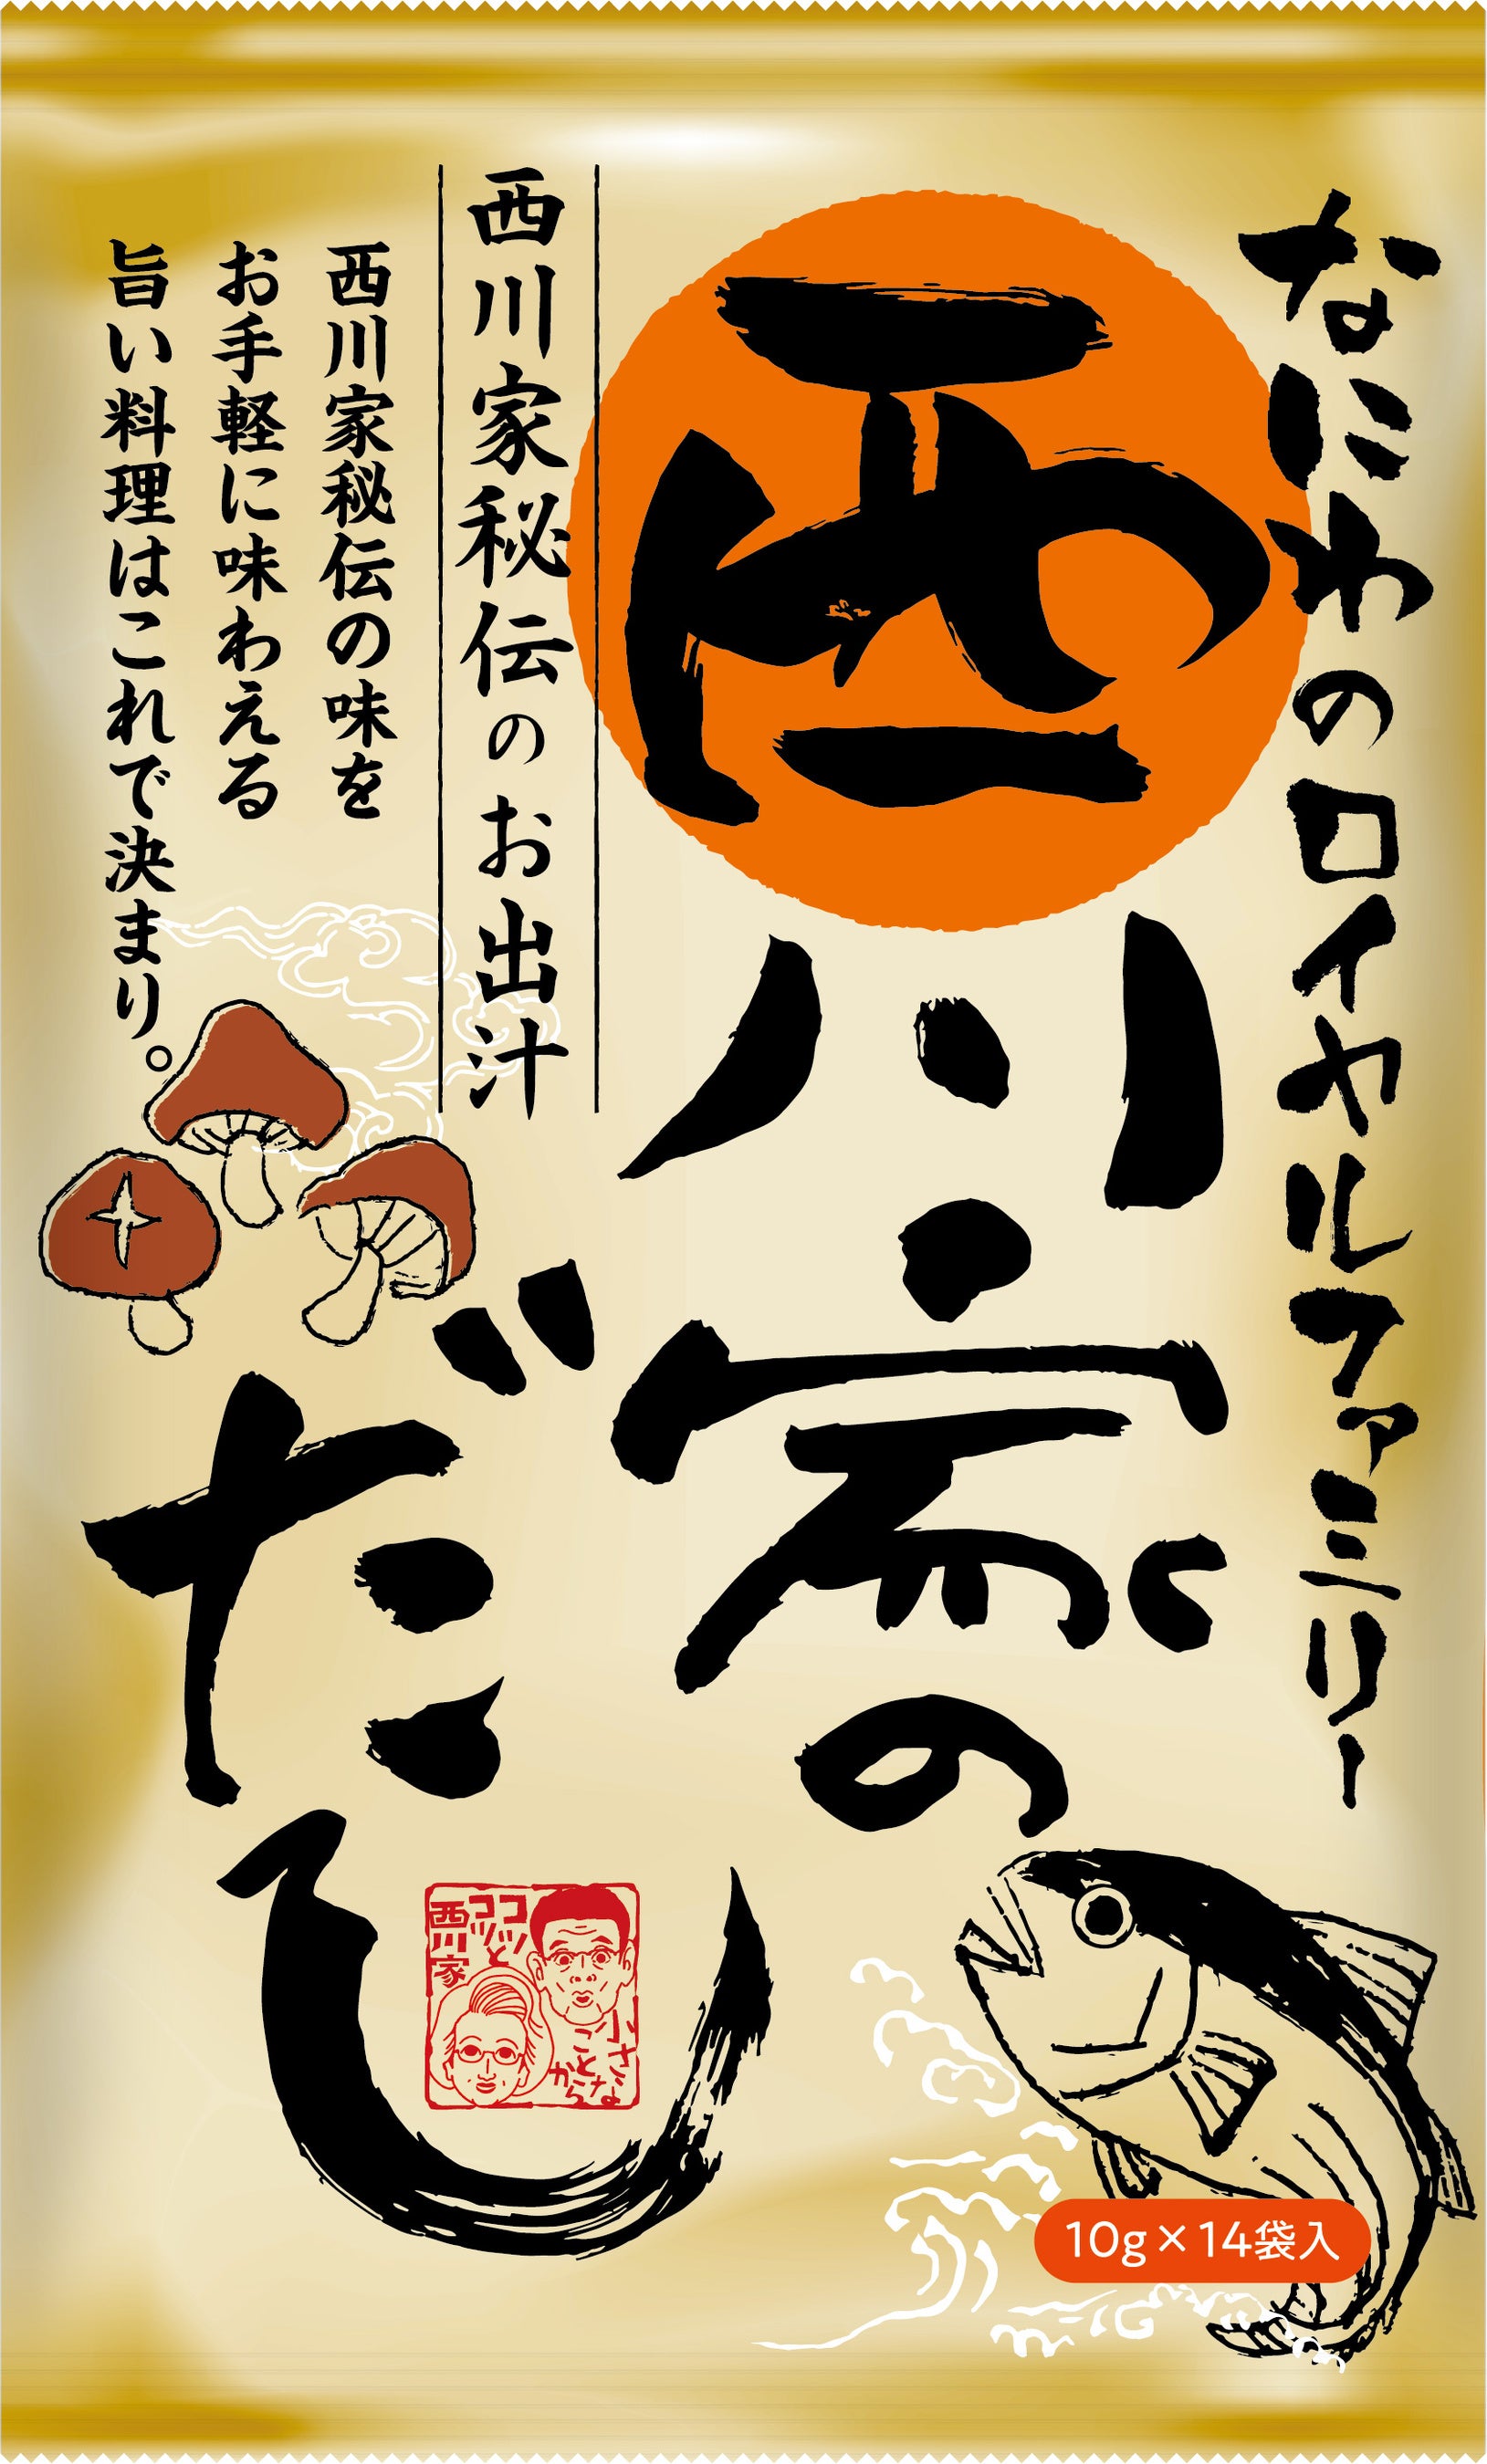 なにわのロイヤルファミリー
西川家の
だし
西川家秘伝のお出汁
西川家秘伝の味を
お手軽に味わえる
旨い料理はこれで決まり。
コツ
コツと
西川家
小さな
ことから
10g×14袋入